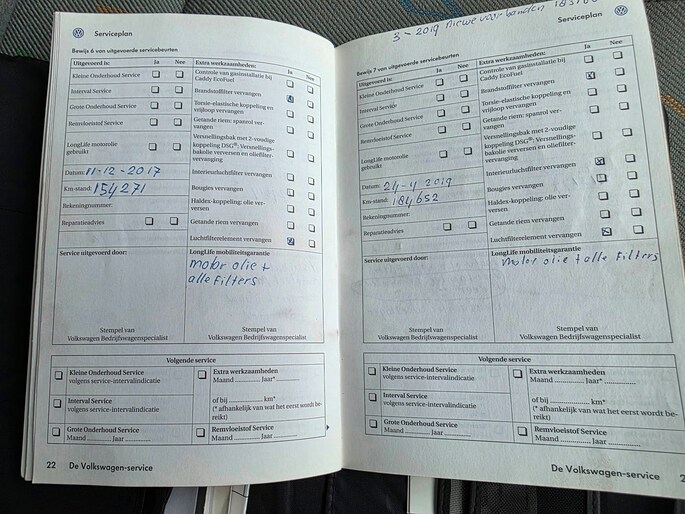 Serviceplan
Bewijs 6 van uitgevoerde servicebeurten
Uitgevoerd is: Ja Nee
Kleine Onderhoud Service
Interval Service
Grote Onderhoud Service
Remvloeistof Service
LongLife motorolie
gebruikt
Datum: 11-12-2017
Km-stand: 154271
Rekeningnummer:
Reparatieadvies
Extra werkzaamheden: Ja Nee
Controle van gasinstallatie bij
Caddy EcoFuel
Brandstoffilter vervangen
Torsie-elastische koppeling en
vrijloop vervangen
Getande riem: spanrol ver-
vangen
Versnellingsbak met 2-voudige
koppeling DSG®: Versnellings-
bakolie verversen en oliefilter-
vervanging
Interieurluchtfilter vervangen
Bougies vervangen
Haldex-koppeling: olie ver-
versen
Getande riem vervangen
Luchtfilterelement vervangen
Service uitgevoerd door:
LongLife mobiliteitsgarantie
motor olie +
alle Filters
Stempel van
Volkswagen Bedrijfswagenspecialist
Stempel van
Volkswagen Bedrijfswagenspecialist
Volgende service
Kleine Onderhoud Service
volgens service-intervalindicatie
Interval Service
volgens service-intervalindicatie
Grote Onderhoud Service
Maand Jaar
Extra werkzaamheden
Maand Jaar*
of bij km*
(* afhankelijk van wat het eerst wordt be-
reikt)
Remvloeistof Service
Maand Jaar
22 De Volkswagen-service
3 - 2019 nieuwe voorbanden
Serviceplan
Bewijs 7 van uitgevoerde servicebeurten
Uitgevoerd is: Ja Nee
Kleine Onderhoud Service
Interval Service
Grote Onderhoud Service
Remvloeistof Service
LongLife motorolie
gebruikt
Datum: 24-4 2019
Km-stand: 184652
Rekeningnummer:
Reparatieadvies
Extra werkzaamheden: Ja Nee
Controle van gasinstallatie bij
Caddy EcoFuel
Brandstoffilter vervangen
Torsie-elastische koppeling en
vrijloop vervangen
Getande riem: spanrol ver-
vangen
Versnellingsbak met 2-voudige
koppeling DSG®: Versnellings-
bakolie verversen en oliefilter-
vervanging
Interieurluchtfilter vervangen
Bougies vervangen
Haldex-koppeling: olie ver-
versen
Getande riem vervangen
Luchtfilterelement vervangen
Service uitgevoerd door:
LongLife mobiliteitsgarantie
motor olie + alle Filters
Stempel van
Volkswagen Bedrijfswagenspecialist
Stempel van
Volkswagen Bedrijfswagenspecialist
Volgende service
Kleine Onderhoud Service
volgens service-intervalindicatie
Interval Service
volgens service-intervalindicatie
Grote Onderhoud Service
Maand Jaar
Extra werkzaamheden
Maand Jaar*
of bij km*
(* afhankelijk van wat het eerst wordt be-
reikt)
Remvloeistof Service
Maand Jaar
De Volkswagen-service